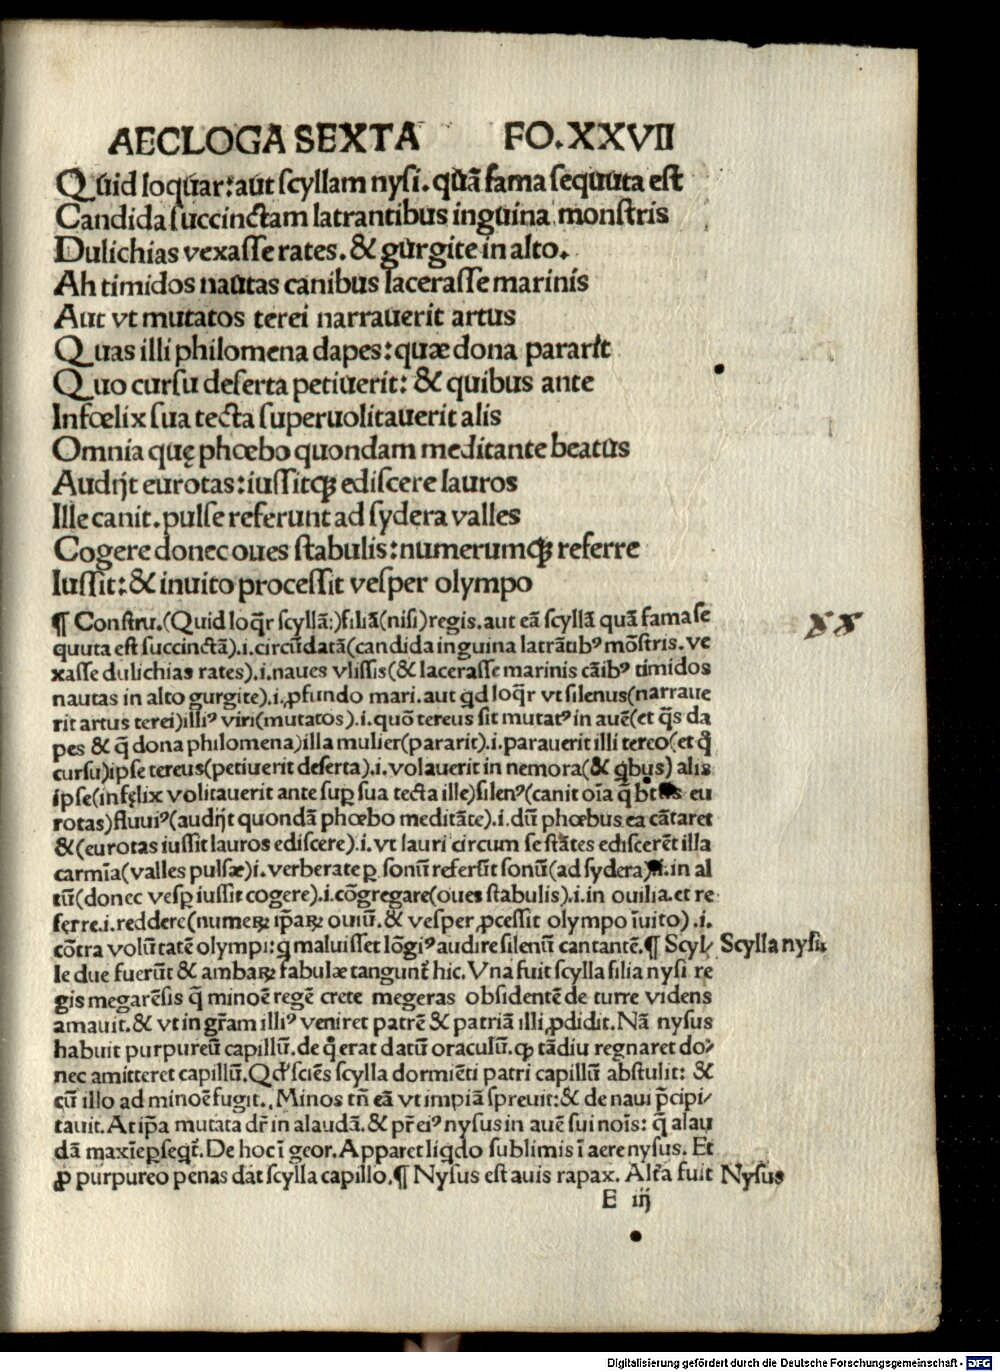 AECLOGA SEXTA FO.XXVII
Quid loquar: aut scyllam nysi. quã fama sequuta est
Candida succinctam latrantibus inguina monstris
Dulichias vexasse rates. & gurgite in alto.
Ah timidos nautas canibus lacerasse marinis
Aut vt mutatos terei narrauerit artus
Quas illi philomena dapes: quæ dona pararit
Quo cursu deserta petiuerit: & quibus ante
Infœlix sua tecta superuolitauerit alis
Omnia quę phœbo quondam meditante beatus
Audijt eurotas: iussitqꝫ ediscere lauros
Ille canit. pulse referunt ad sydera valles
Cogere donec oues stabulis: numerumqꝫ referre
Iussit: & inuito processit vesper olympo
¶ Constru. (Quid loqr̃ scyllã:) filiã (nisi) regis. aut eã scyllã quã fama se
quuta est succinctã) .i. circũdatã (candida inguina latrãtibꝰ mõstris. ve
xasse dulichias rates) .i. naues vlissis (& lacerasse marinis cãibꝰ timidos
nautas in alto gurgite) .i. ꝓfundo mari. aut qd loqr̃ vt silenus (narraue
rit artus terei) illiꝰ viri (mutatos) .i. quõ tereus sit mutatꝰ in auẽ (et q̃s da
pes & q̃ dona philomena) illa mulier (pararit) .i. parauerit illi tereo (et q̊
cursu) ipse tereus (petiuerit deserta) .i. volauerit in nemora (& qbus) alis
ipse (infęlix volitauerit ante suꝑ sua tecta ille) silenꝰ (canit oĩa q̃ eu
rotas) fluuiꝰ (audijt quondã phœbo meditãte) .i. dũ phœbus ea cãtaret
& (eurotas iussit lauros ediscere) .i. vt lauri circum se stãtes ediscerẽt illa
carmĩa (valles pulsæ) .i. verberate ꝑ sonũ referũt sonũ (ad sydera) .i. in al
tũ (donec vesꝑ iussit cogere) .i. cõgregare (oues stabulis) .i. in ouilia. et re
ferre .i. reddere (numeꝝ ip̃aꝝ ouiũ. & vesper ꝓcessit olympo ĩuito) .i.
cõtra volũtatẽ olympi: q maluisset lõgiꝰ audire silenũ cantantẽ. ¶ Scyl/ Scylla nysi.
le due fuerũt & ambaꝝ fabulæ tangunt̃ hic. Vna fuit scylla filia nysi re
gis megarẽsis q̃ minoẽ regẽ crete megeras obsidentẽ de turre videns
amauit. & vt in gr̃am illiꝰ veniret patrẽ & patriã illi ꝓdidit. Nã nysus
habuit purpureũ capillũ. de q̊ erat datũ oraculũ. ꝙ tãdiu regnaret do/
nec amitteret capillũ. Qd' sciẽs scylla dormiẽti patri capillũ abstulit: &
cũ illo ad minoẽ fugit. Minos tñ eã vt impiã spreuit: & de naui p̃cipi/
tauit. At ip̃a mutata dr̃ in alaudã. & pr̃ eiꝰ nysus in auẽ sui noĩs: q̃ alau
dã maxĩe ꝑseqt̃. De hoc ĩ geor. Apparet liqdo sublimis ĩ aere nysus. Et
ꝓ purpureo penas dat scylla capillo. ¶ Nysus est auis rapax. Alt̃a fuit Nysus
E iij
Digitalisierung gefördert durch die Deutsche Forschungsgemeinschaft - DFG